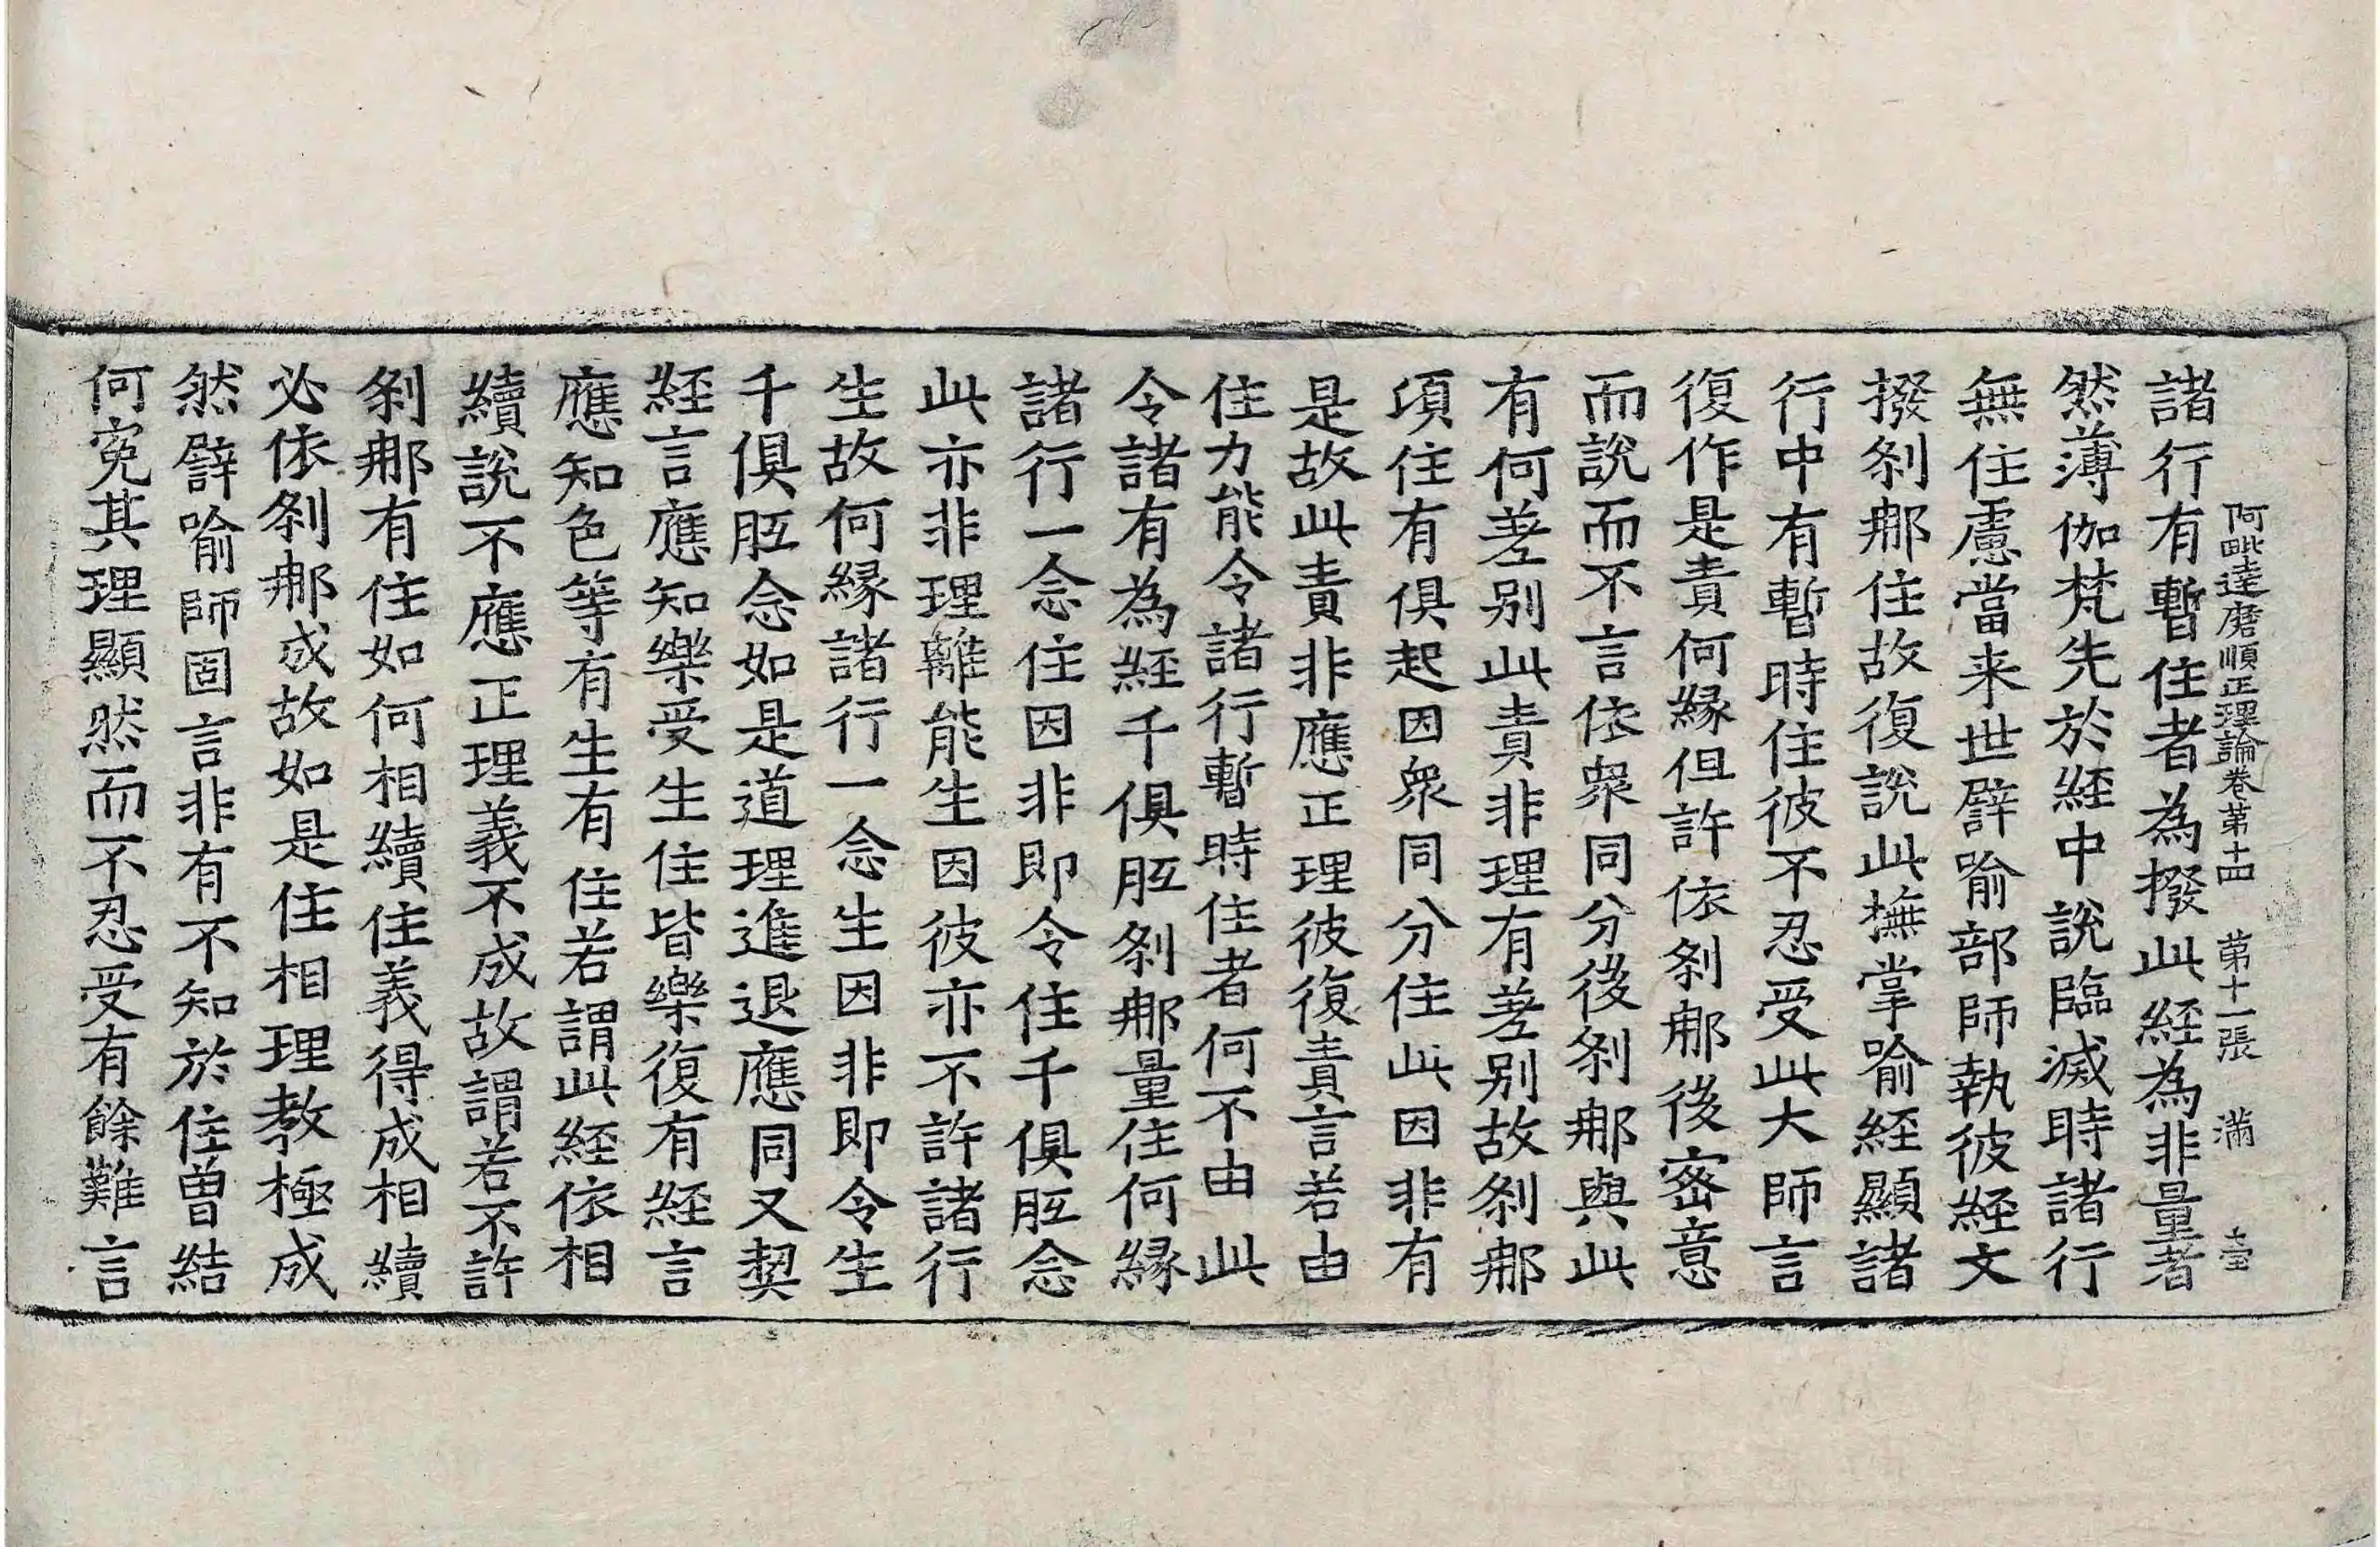 阿毗達磨順正理論卷第十四　第十一張　滿
諸行有暫住者為撥此経為非量者
然薄伽梵先於経中說臨滅時諸行
無住慮當来世譬喻部師執彼経文
撥剎那住故復說此撫掌喻経顯諸
行中有暫時住彼不忍受此大師言
復作是責何縁但許依剎那後密意
而說而不言依衆同分後剎那與此
有何差别此責非理有差别故剎那
項住有俱起因衆同分住此因非有
是故此責非應正理彼復責言若由
住力能令諸行暫時住者何不由此
令諸有為経千俱胝剎那量住何縁
諸行一念住因非即令住千俱胝念
此亦非理離能生因彼亦不許諸行
生故何縁諸行一念生因非即令生
千俱胝念如是道理進退應同又契
経言應知樂受生住皆樂復有経言
應知色等有生有住若謂此経依相
續說不應正理義不成故謂若不許
剎那有住如何相續住義得成相續
必依剎那成故如是住相理教極成
然譬喻師固言非有不知於住曽結
何寃其理顯然而不忍受有餘難言